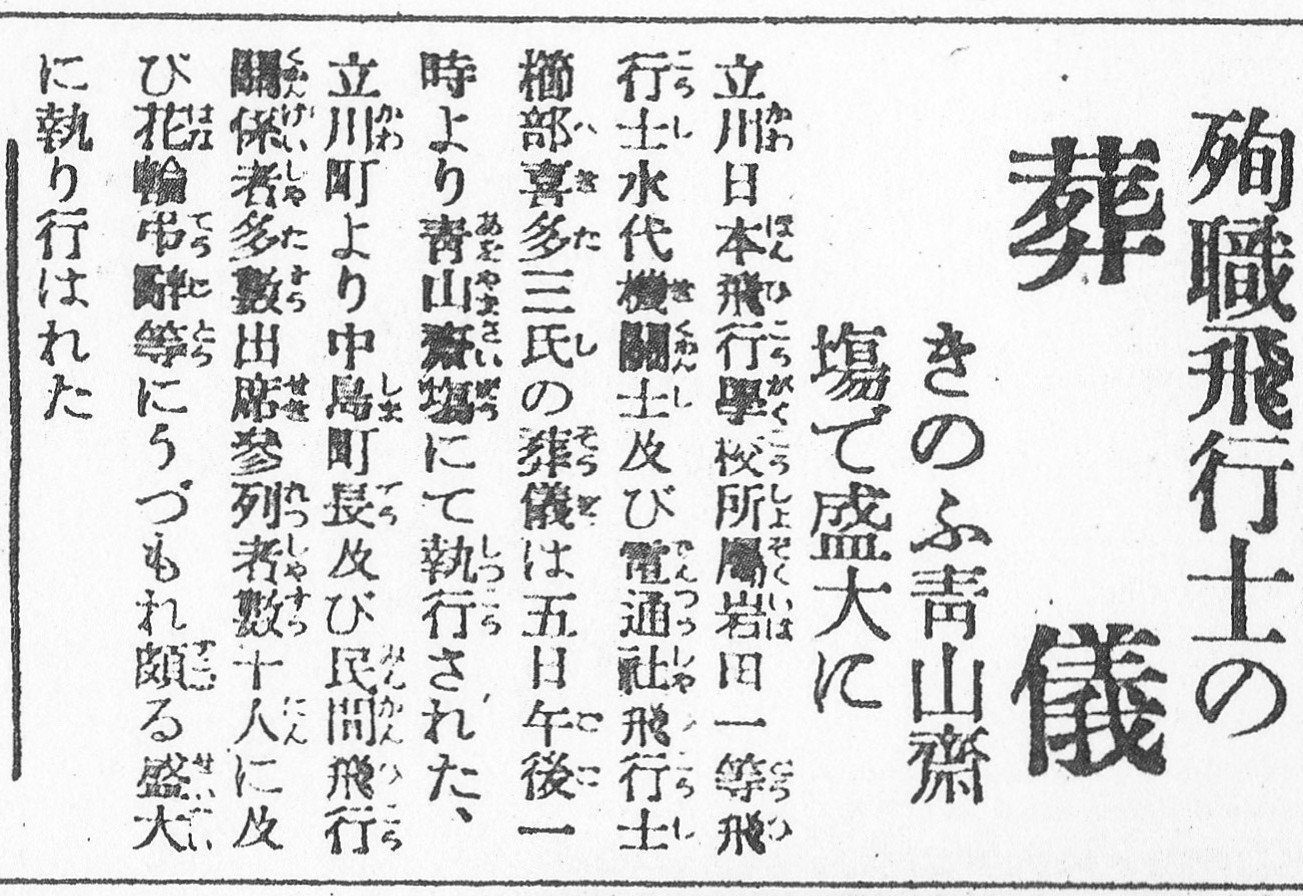 殉職飛行士の
葬儀
きのふ靑山齋
塲で盛大に
立川日本飛行學校所屬岩田一等飛
行士水代機關士及び電通社飛行士
櫛部喜多三氏の葬儀は五日午後一
時より靑山齋塲にて執行された、
立川町より中島町長及び民間飛行
關係者多數出席參列者數十人に及
び花輪弔辭等にうづもれ頗る盛大
に執り行はれた